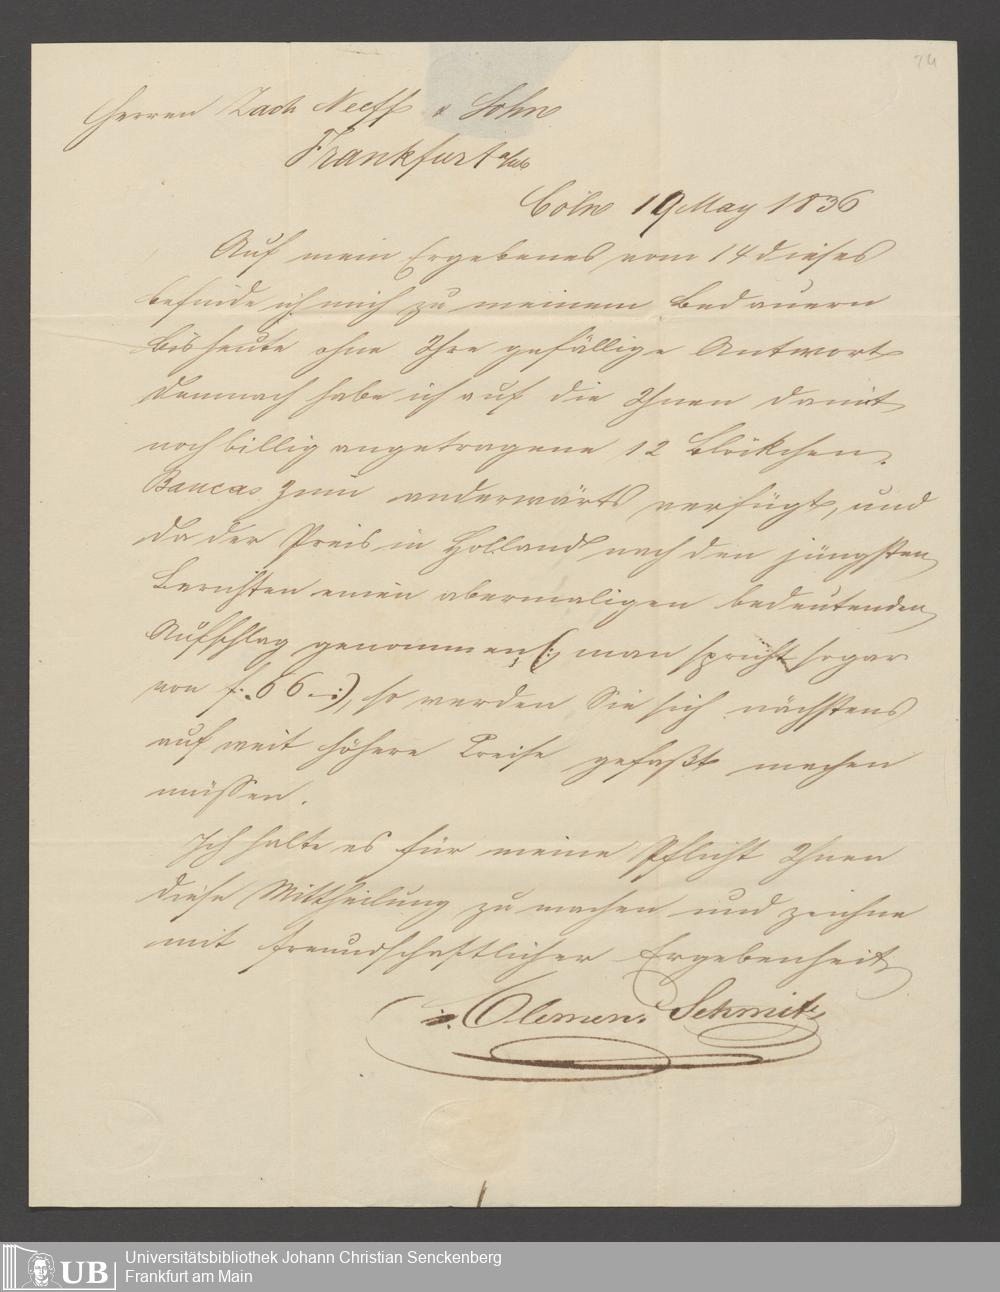 74
Herren Zach Neeff & Sohn
Frankfurt a/m
Cöln 19 May 1836
Auf mein Ergebenes vom 14 dieses
befinde ich mich zu meinem Bedauern
bis heute ohne Ihre gefällige Antwort
demnach habe ich auf die Ihnen damit
noch billig angetragene 12 Blöckchen
Bancas Zinn anderwärts verfügt, und
da der Preis in Holland nach den jüngsten
Berichten einen abermaligen bedeutenden
Aufschlag genommen (: man spricht sogar
von f. 66.-:), so werden Sie sich nächstens
auf weit höhere Preise gefaßt machen
müssen.
Ich halte es für meine Pflicht Ihnen
diese Mittheilung zu machen und zeichne
mit freundschaftlicher Ergebenheit
Clemens Schmitz
UB
Universitätsbibliothek Johann Christian Senckenberg
Frankfurt am Main